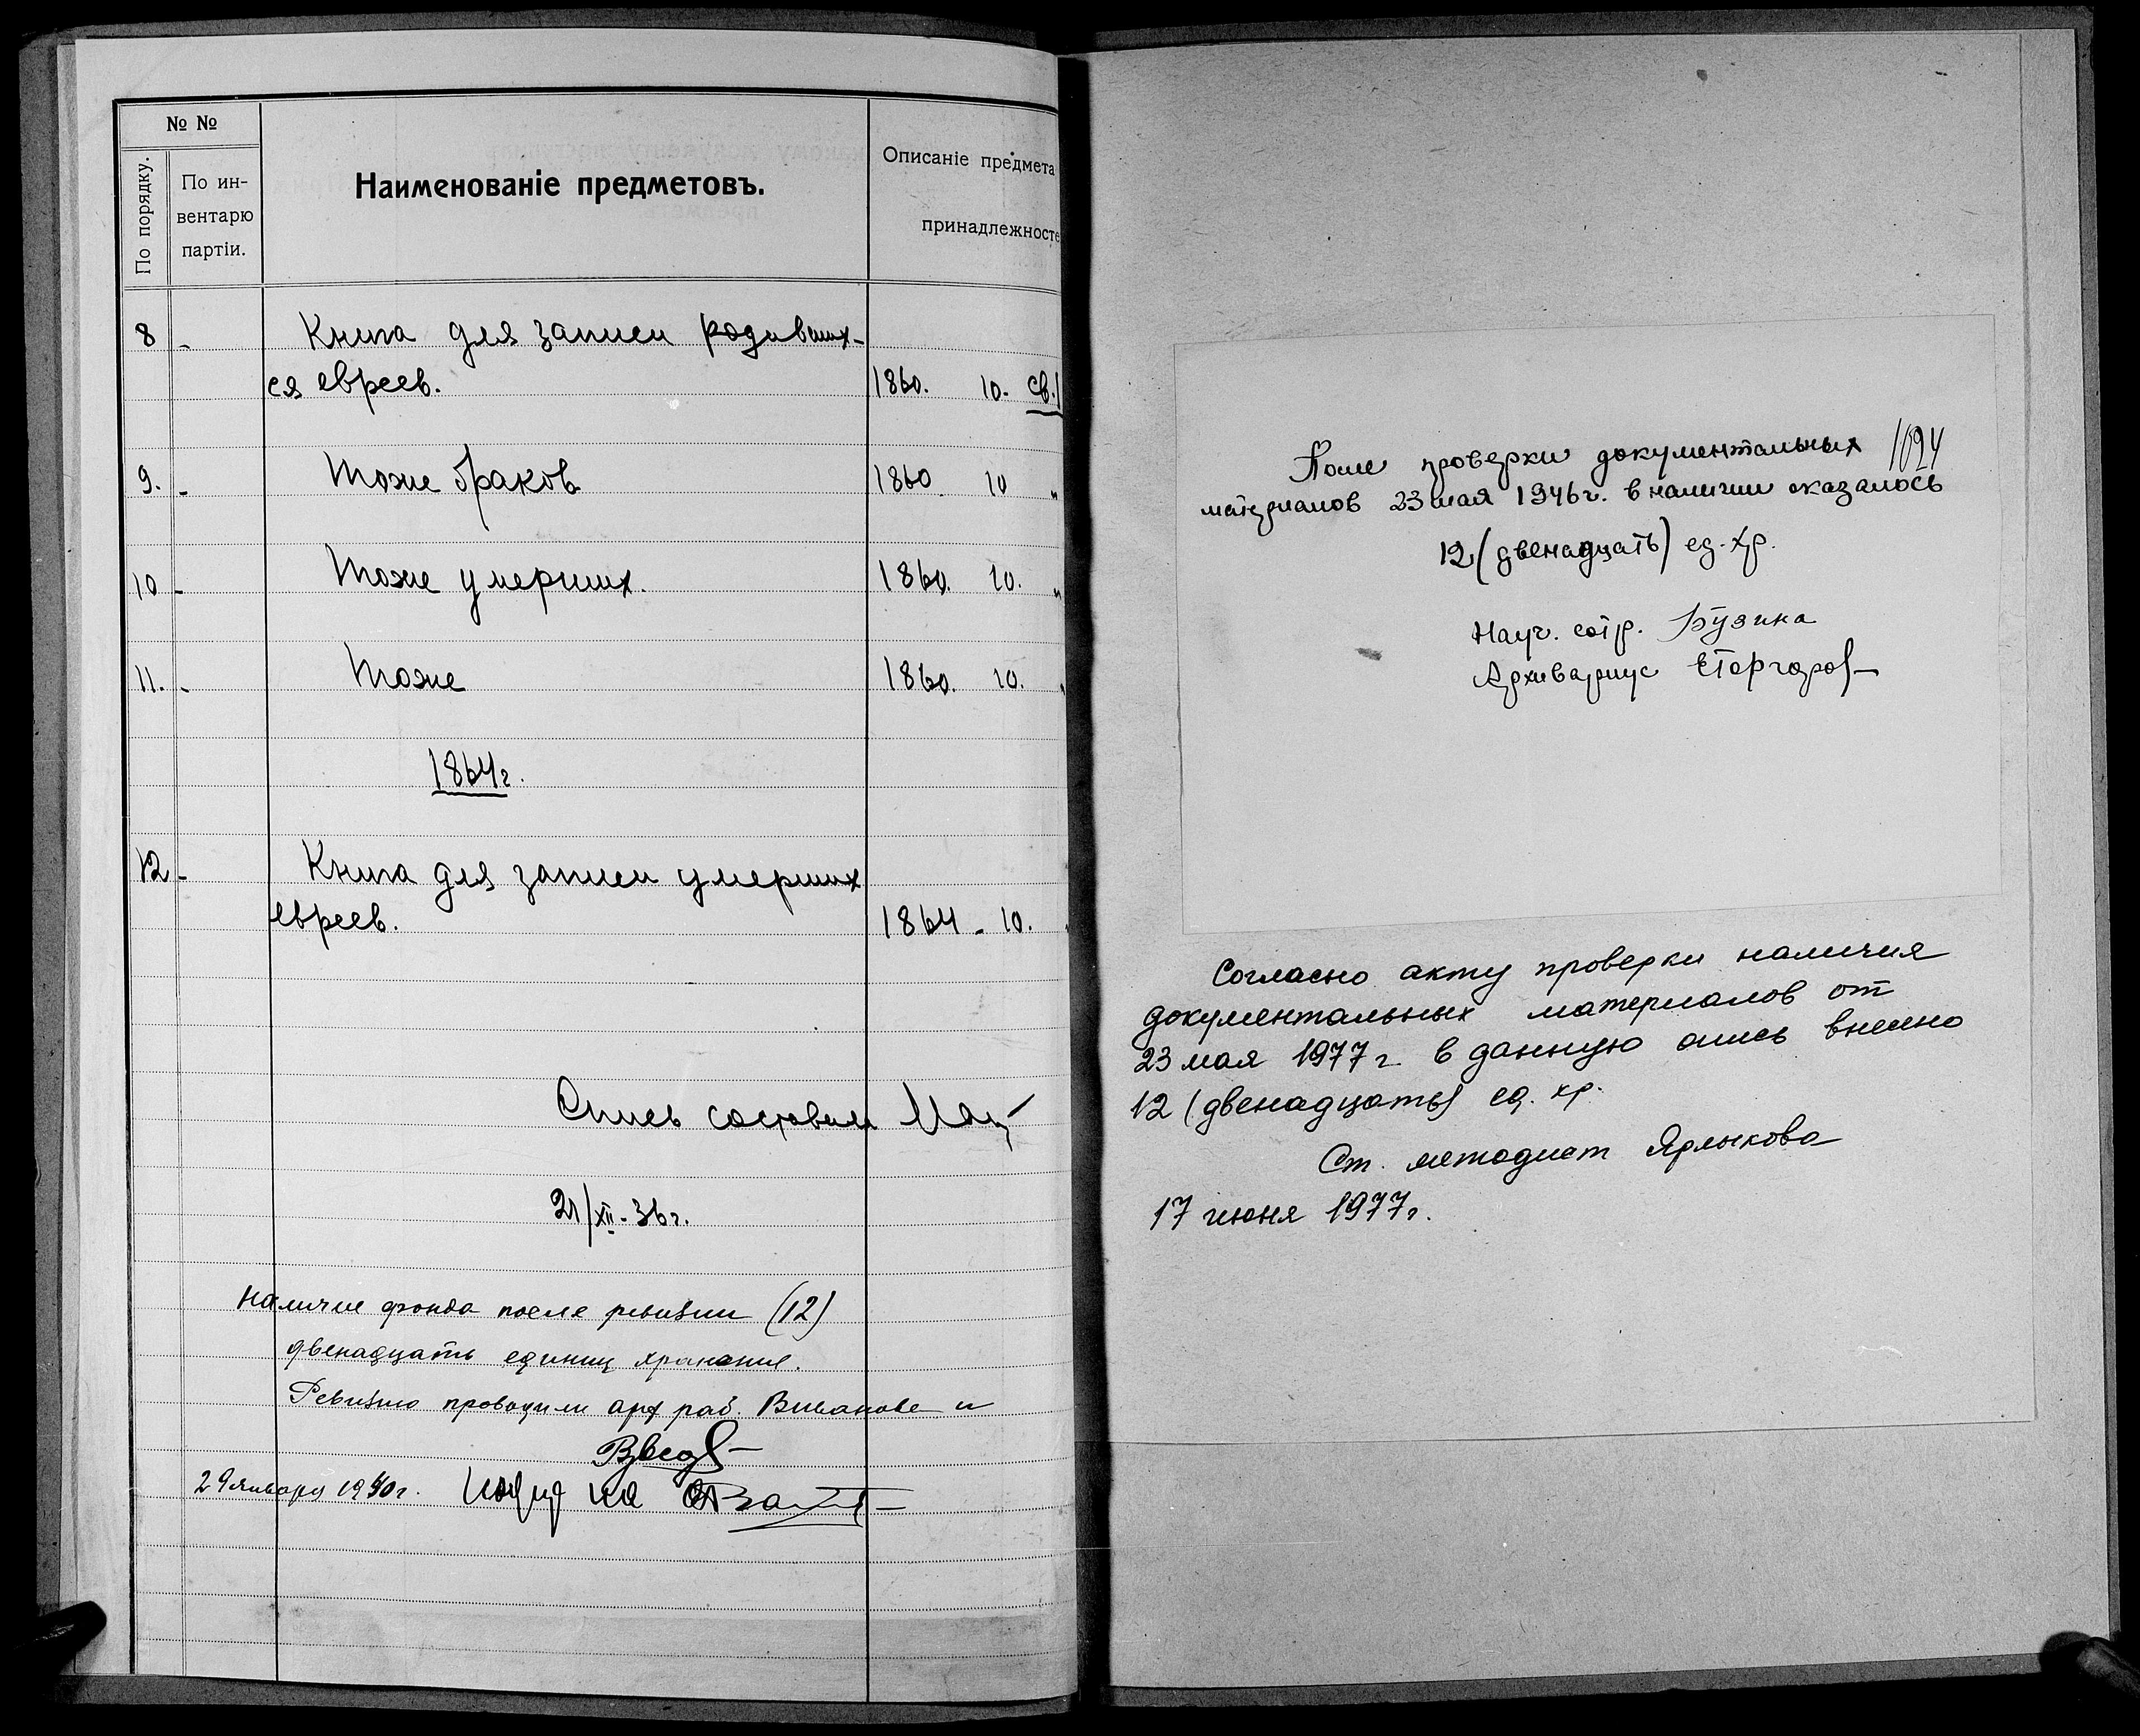 № №
По порядку.
По ин-
вентарю
партіи.
Наименованіе предметовъ.
Описаніе предмета
принадлежносте
8 - Книга для записи родивших-
ся евреев. 1860. 10. св.1
9. - Тоже браков 1860. 10 "
10 - Тоже умерших. 1860. 10. "
11. - Тоже 1860. 10.
1864г.
12 - Книга для записи умерших
евреев. 1864 - 10.
Опись составил
21/XII - 36г.
Наличие фонда после ревизии (12)
двенадцать единиц хранения.
Ревизию проводили арх раб. и
29 января 1940г.
После проверки документальных
материалов 23 мая 1946г. в наличии оказалось
12 (двенадцать) ед. хр.
Науч. сотр. Бузина
Архивариус
Согласно акту проверки наличия
документальных материалов от
23 мая 1977 г. в данную опись внесено
12 (двенадцать) ед. хр.
Ст. методист Ярлыкова
17 июня 1977г.